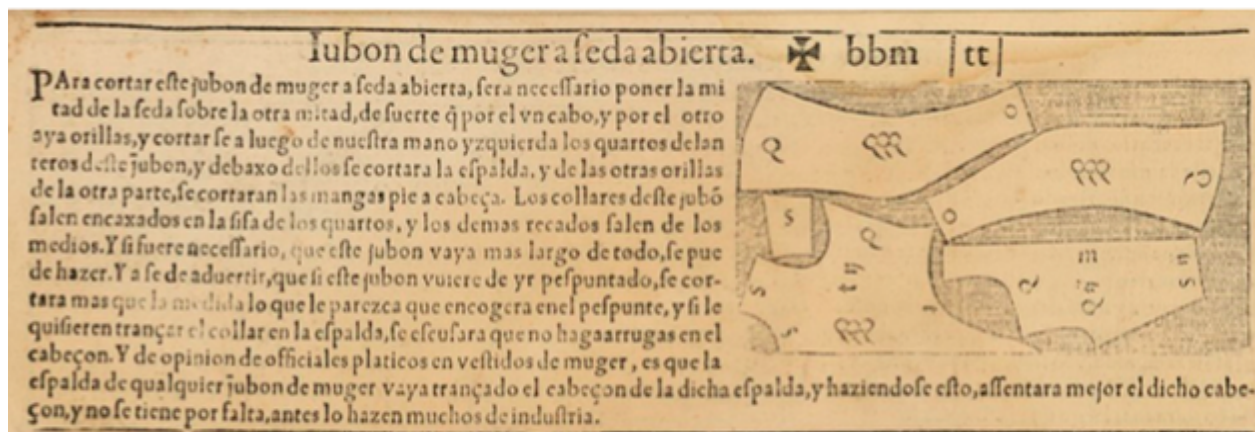 Iubon de muger a ſeda abierta. ✠ bbm |tt|
PAra cortar eſte jubon de muger a ſeda abierta, ſera neceſſario poner la mi
tad de la ſeda ſobre la otra mitad, de ſuerte q̃ por el vn cabo, y por el otro
aya orillas, y cortar ſe a luego de nueſtra mano yzquierda los quartos delan
teros deſte jubon, y debaxo dellos ſe cortara la eſpalda, y de las otras orillas
de la otra parte, ſe cortaran las mangas pie a cabeça. Los collares deſte jubõ
ſalen encaxados en la ſiſa de los quartos, y los demas recados ſalen de los
medios. Y ſi fuere neceſſario, que eſte jubon vaya mas largo de todo, ſe pue
de hazer. Y a ſe de aduertir, que ſi eſte jubon vuiere de yr peſpuntado, ſe cor-
tara mas que la medida lo que le parezca que encogera enel peſpunte, y ſi le
quiſieren trançar el collar en la eſpalda, ſe eſcuſara que no haga arrugas en el
cabeçon. Y de opinion de officiales platicos en veſtidos de muger, es que la
eſpalda de qualquier jubon de muger vaya trançado el cabeçon de la dicha eſpalda, y haziendoſe eſto, aſſentara mejor el dicho cabe-
çon, y no ſe tiene por falta, antes lo hazen muchos de induſtria.